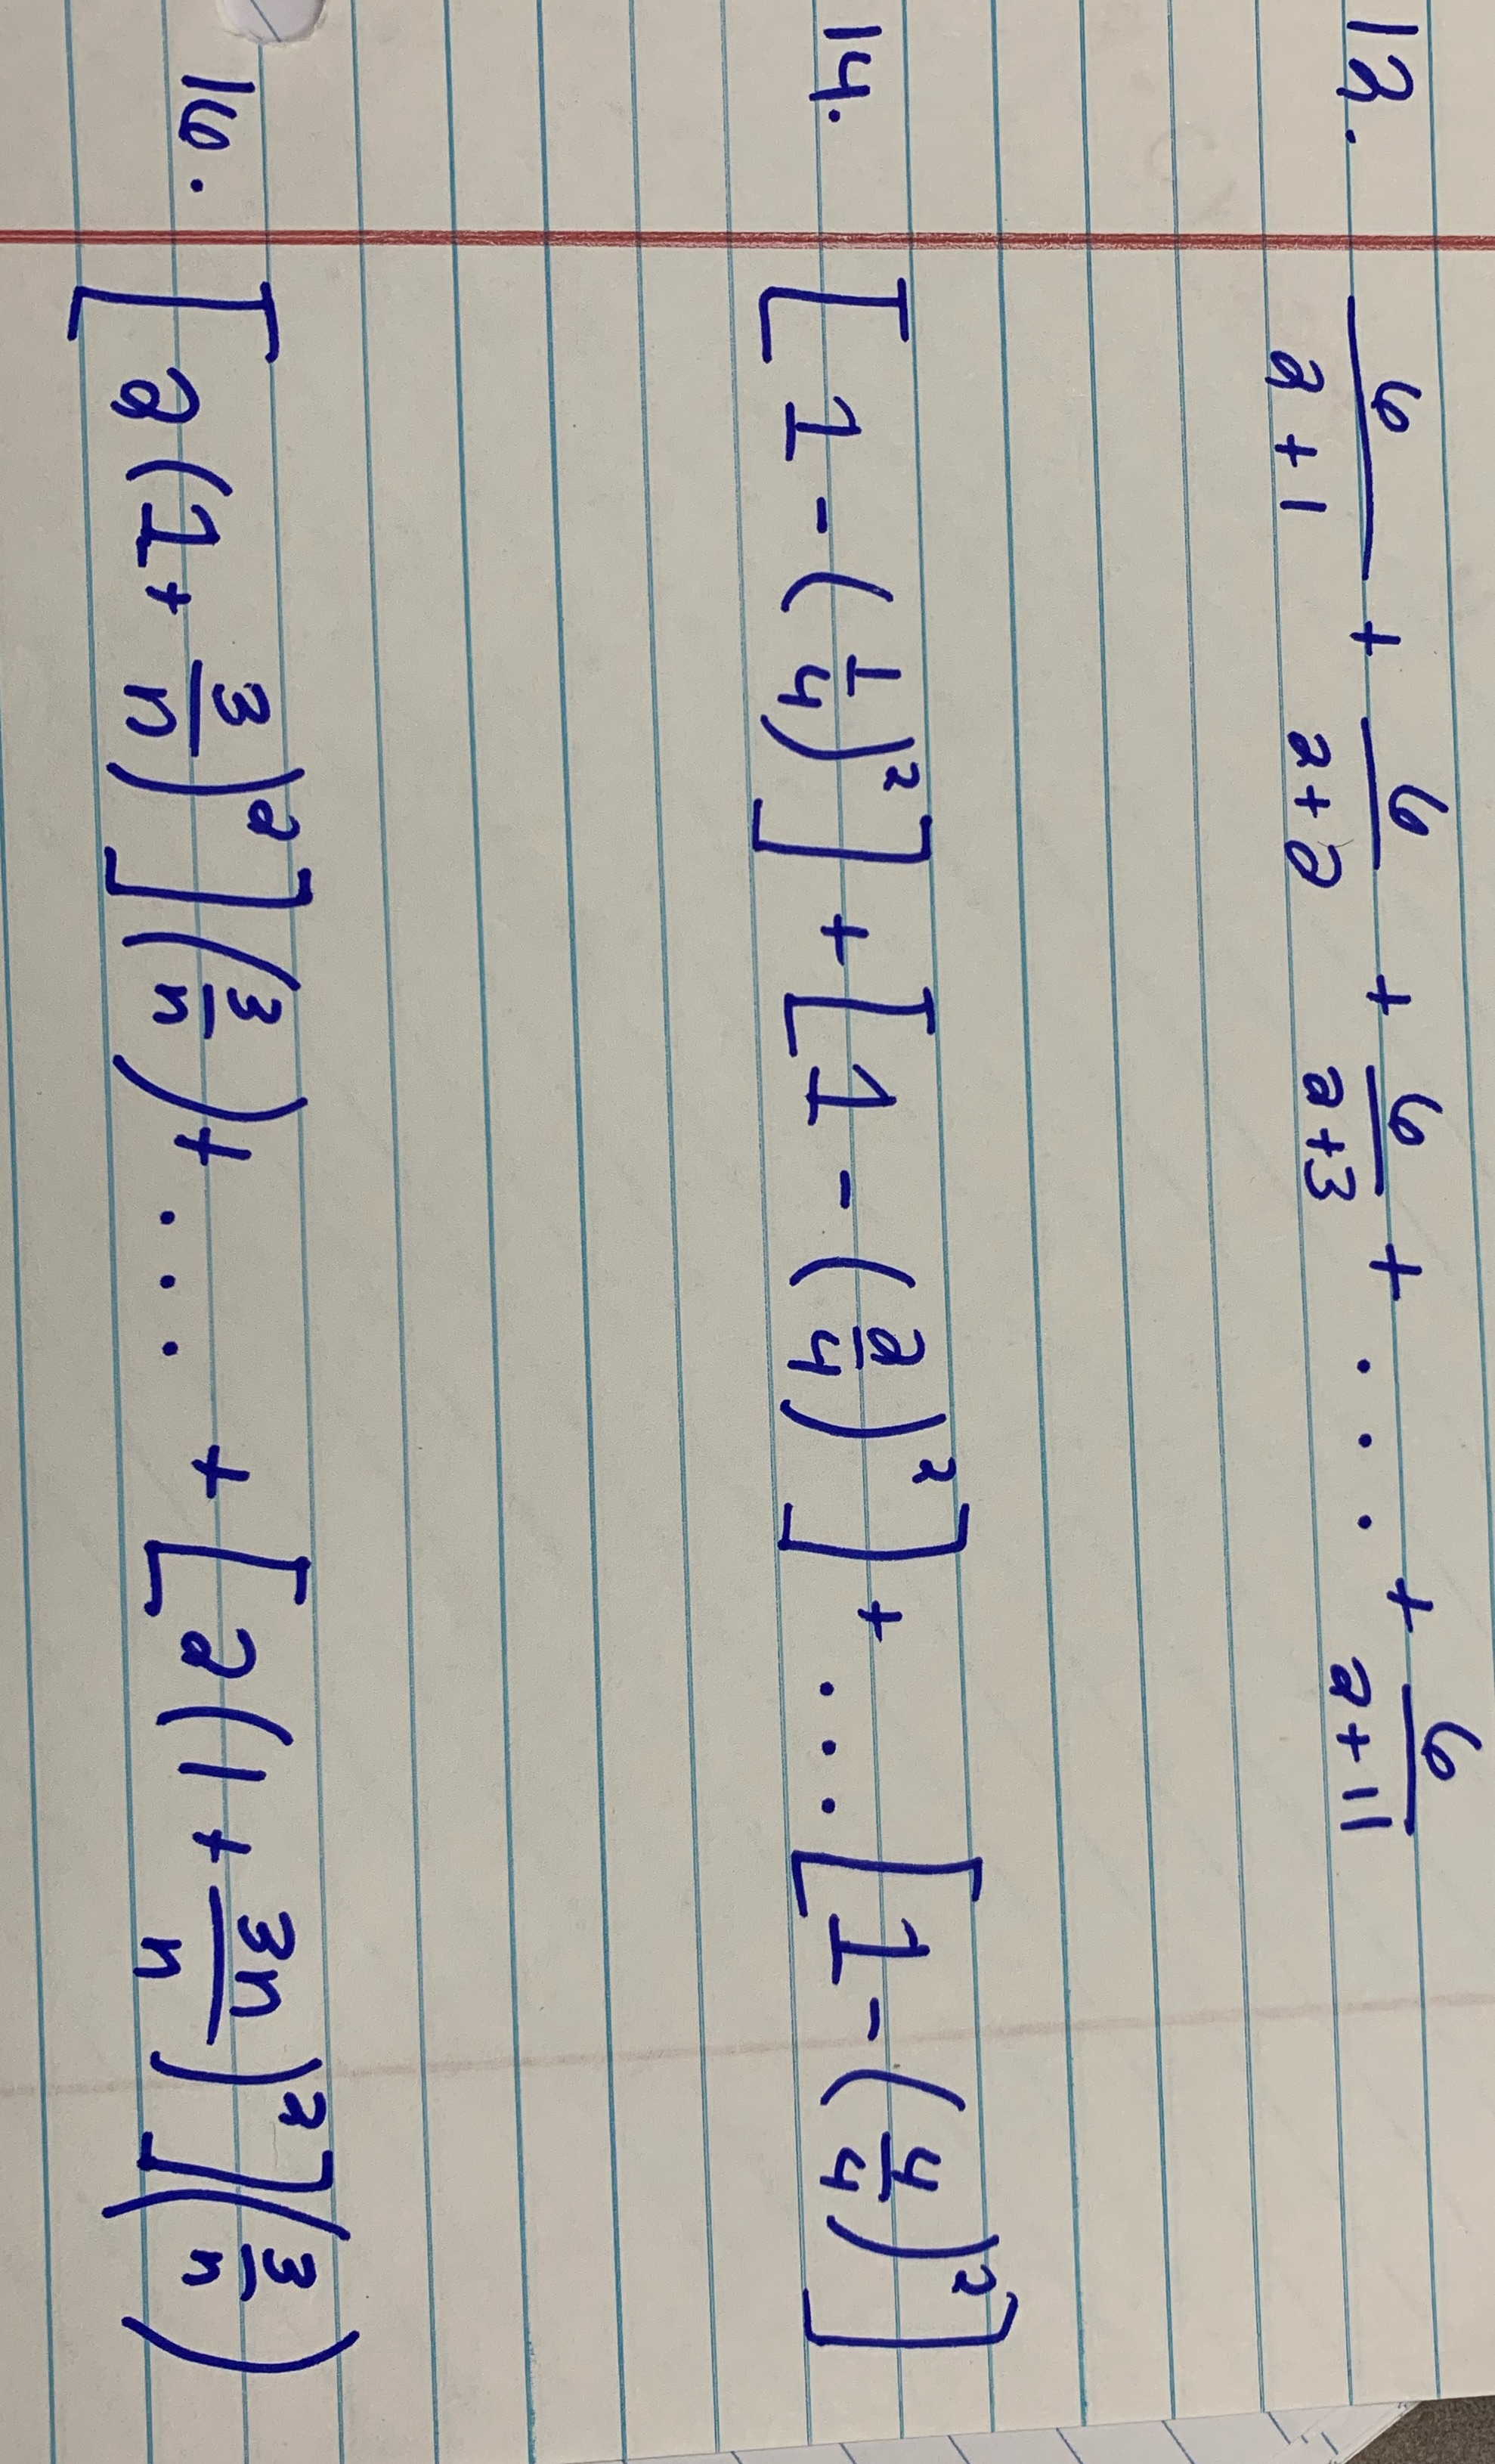 12. \frac{6}{2+1} + \frac{6}{2+2} + \frac{6}{2+3} + ... + \frac{6}{2+11}
14. [1 - (\frac{1}{4})^2] + [1 - (\frac{2}{4})^2] + ... [1 - (\frac{4}{4})^2]
16. [2(1 + \frac{3}{n})^2](\frac{3}{n}) + ... + [2(1 + \frac{3n}{n})^2](\frac{3}{n})